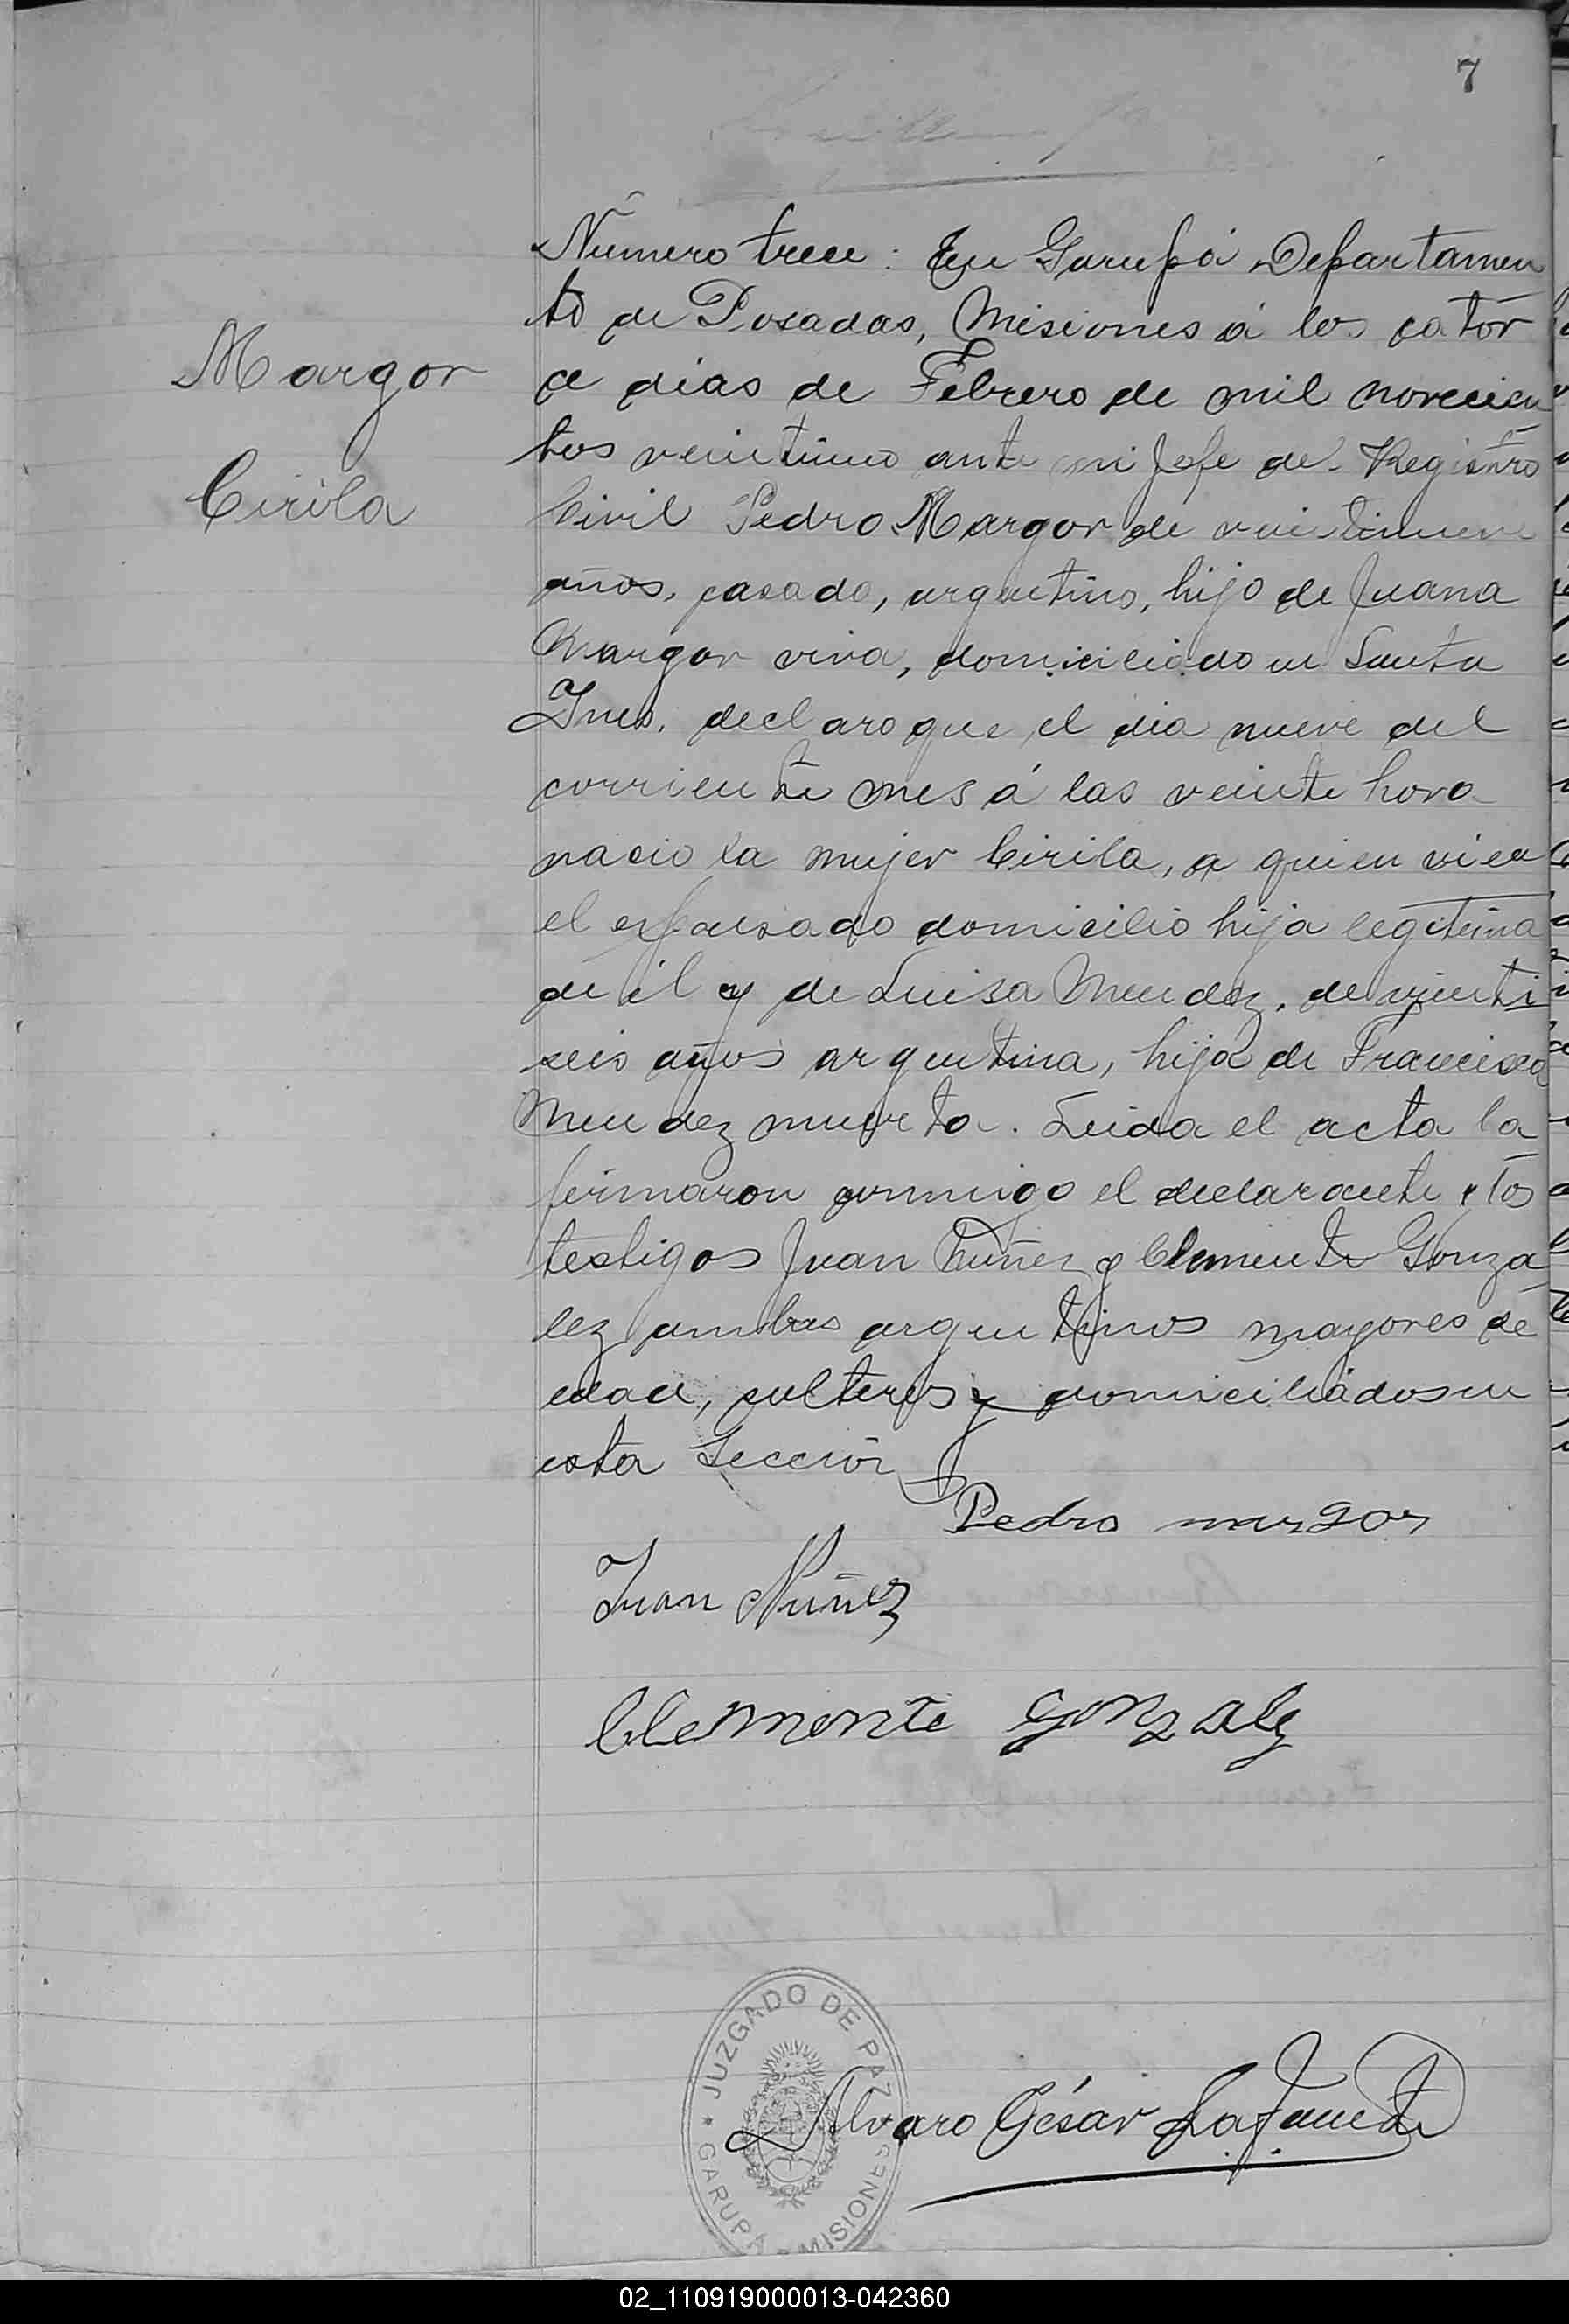 7
Número trece: En Garupá Departamen
to de Posadas, Misiones á los cator
ce dias de Febrero de mil novecien
tos veintiuno ante mi Jefe del Registro
Civil Pedro Margor de veintinueve
años, casado, argentino, hijo de Juana
Margor viva, domiciliado en Santa
Ines, declaro que el dia nueve del
corriente mes á las veinte hora
nacio la mujer Cirila, a quien vi en
el expresado domicilio hija legitima
de él y de Luisa Mendez, de vienti
seis años argentina, hija de Francisca
Mendez muerta. Leida el acta la
firmaron conmigo el declarante y los
testigos Juan Nuñez y Clemente Gonza
lez ambos argentinos mayores de
edad, solteros y domiciliados en
esta Sección
Margor
Cirila
Pedro margor
Juan Nuñez
Clemente Gonzalez
JUZGADO DE PAZ
GARUPÁ - MISIONES
Alvaro César
02_110919000013-042360